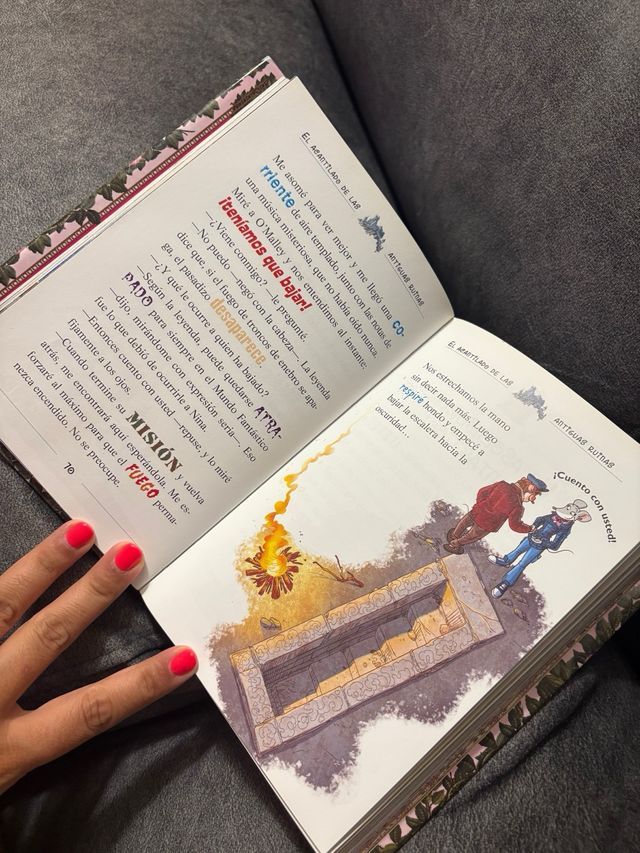 EL ACANTILADO DE LAS ANTIGUAS RUINAS
Me asomé para ver mejor y me llegó una co-
rriente de aire templado, junto con las notas de
una música misteriosa, que no había oído nunca.
¡teníamos que bajar!
Miré a O'Malley y nos entendimos al instante.
—¿Viene conmigo? —le pregunté.
—No puedo —negó con la cabeza—. La leyenda
dice que, si el fuego de troncos de enebro se apa-
ga, el pasadizo desaparece.
—¿Y qué le ocurre a quien ha bajado?
—Según la leyenda, puede quedarse ATRA-
PADO para siempre en el Mundo Fantástico
—dijo, mirándome con expresión seria—. Eso
fue lo que debió de ocurrirle a Nina.
—Entonces cuento con usted —repuse, y lo miré
fijamente a los ojos.
—Cuando termine su MISIÓN y vuelva
atrás, me encontrará aquí esperándola. Me es-
forzaré al máximo para que el FUEGO perma-
nezca encendido. No se preocupe.
70
EL ACANTILADO DE LAS ANTIGUAS RUINAS
Nos estrechamos la mano
sin decir nada más. Luego
respiré hondo y empecé a
bajar la escalera hacia la
oscuridad...
¡Cuento con usted!